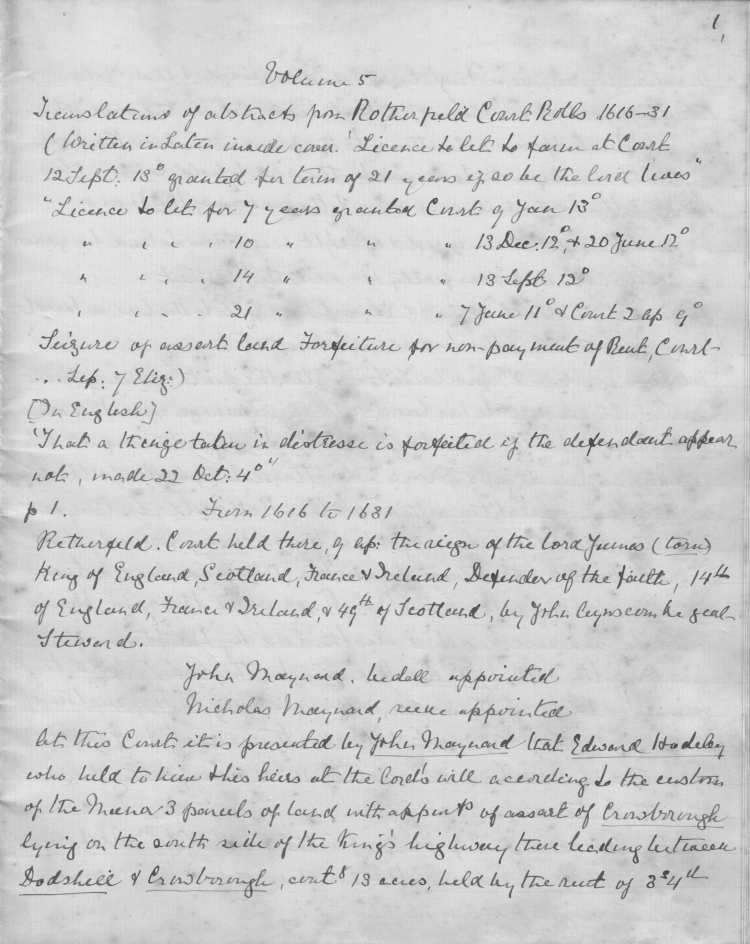 1
Volume 5
Translations of abstracts from Rotherfield Court Rolls 1616-31
(Written in Laten inside cover. 'Licence to let to farm at Court
12 Sept: 13° granted for term of 21 years if so be the lord lives"
"Licence to let for 7 years granted Court 9 Jan 13°
" " " " 10 " " " 13 Dec. 12°, & 20 June 12°
" " " " 14 " " " 13 Sept 12°
" " " 21 " " " 7 June 11° & Court 2 ap 9°
Seizure of assart land Forfeiture for non-payment of Rent, Court
... Sep: 7 Eliz:)
[In English]
"That a thinge taken in distresse is forfeited if the defendant appear
not, made 22 Oct: 4°"
p 1. From 1616 to 1631
Retherfeld. Court held there, 9 ap: the reign of the lord James (torn)
King of England, Scotland, France & Ireland, Defender of the faith, 14th
of England, France & Ireland, & 49th of Scotland, by John gent
Steward.
John Maynard, bedell appointed
Nicholas Maynard, reeve appointed
At this Court it is presented by John Maynard that Edward Hodeley
who held to him & his heirs at the lord's will according to the custom
of the Manor 3 parcels of land with appurts of assart of Crowborough
lying on the south side of the King's highway there leading between
Dodshill & Crowborough, contg 13 acres, held by the rent of 3s 4d